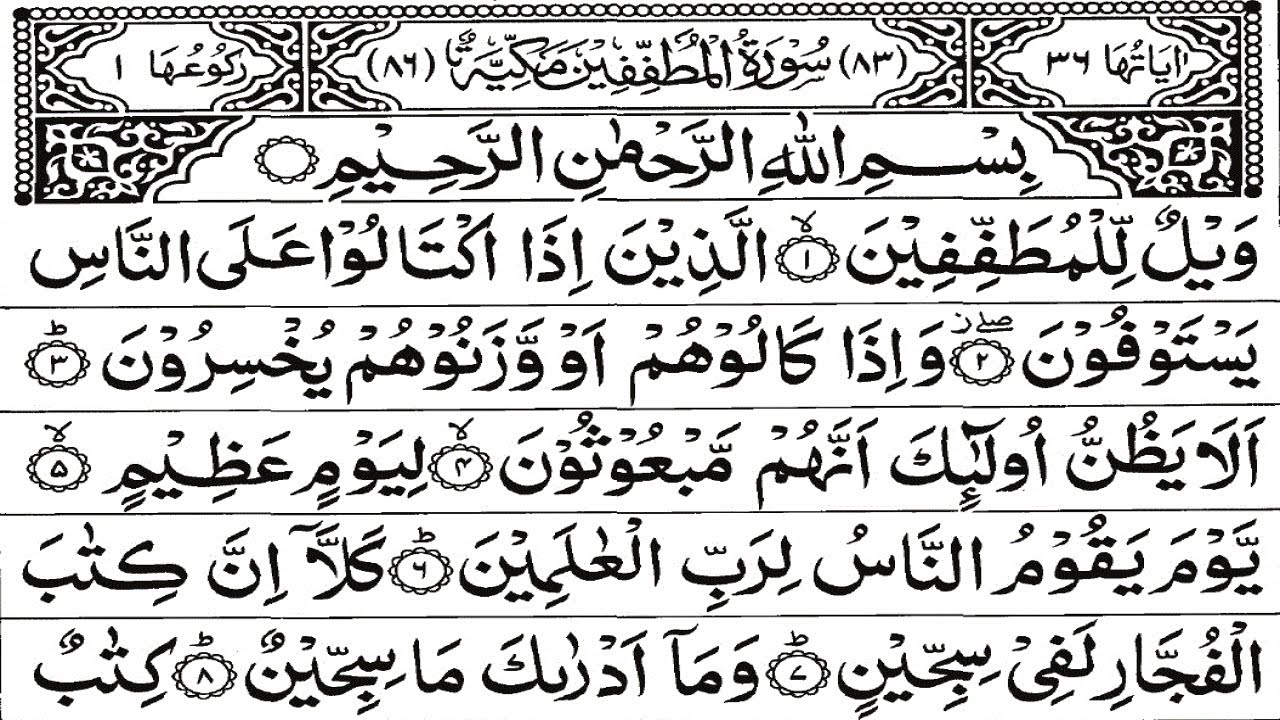 اٰيَاتُهَا ٣٦ (٨٣) سُوْرَةُ الْمُطَفِّفِيْنَ مَكِّيَّةٌ (٨٦) رُكُوْعُهَا ١
بِسْمِ اللّٰهِ الرَّحْمٰنِ الرَّحِيْمِ
وَيْلٌ لِّلْمُطَفِّفِيْنَ ۙ﴿١﴾ الَّذِيْنَ اِذَا اكْتَالُوْا عَلَى النَّاسِ
يَسْتَوْفُوْنَ ﴿٢﴾ۖز وَاِذَا كَالُوْهُمْ اَوْ وَّزَنُوْهُمْ يُخْسِرُوْنَ ؕ﴿٣﴾
اَلَا يَظُنُّ اُولٰٓئِكَ اَنَّهُمْ مَّبْعُوْثُوْنَ ۙ﴿۴﴾ لِيَوْمٍ عَظِيْمٍ ۙ﴿۵﴾
يَّوْمَ يَقُوْمُ النَّاسُ لِرَبِّ الْعٰلَمِيْنَ ؕ﴿۶﴾ كَلَّاۤ اِنَّ كِتٰبَ
الْفُجَّارِ لَفِيْ سِجِّيْنٍ ؕ﴿۷﴾ وَمَاۤ اَدْرٰىكَ مَا سِجِّيْنٌ ؕ﴿٨﴾ كِتٰبٌ